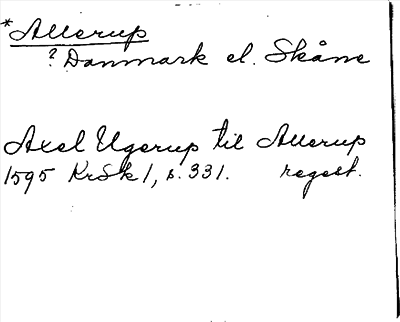 *Allerup
? Danmark el. Skåne
Axel Ugerup til Allerup
1595 KrSk 1, s. 331. regest.